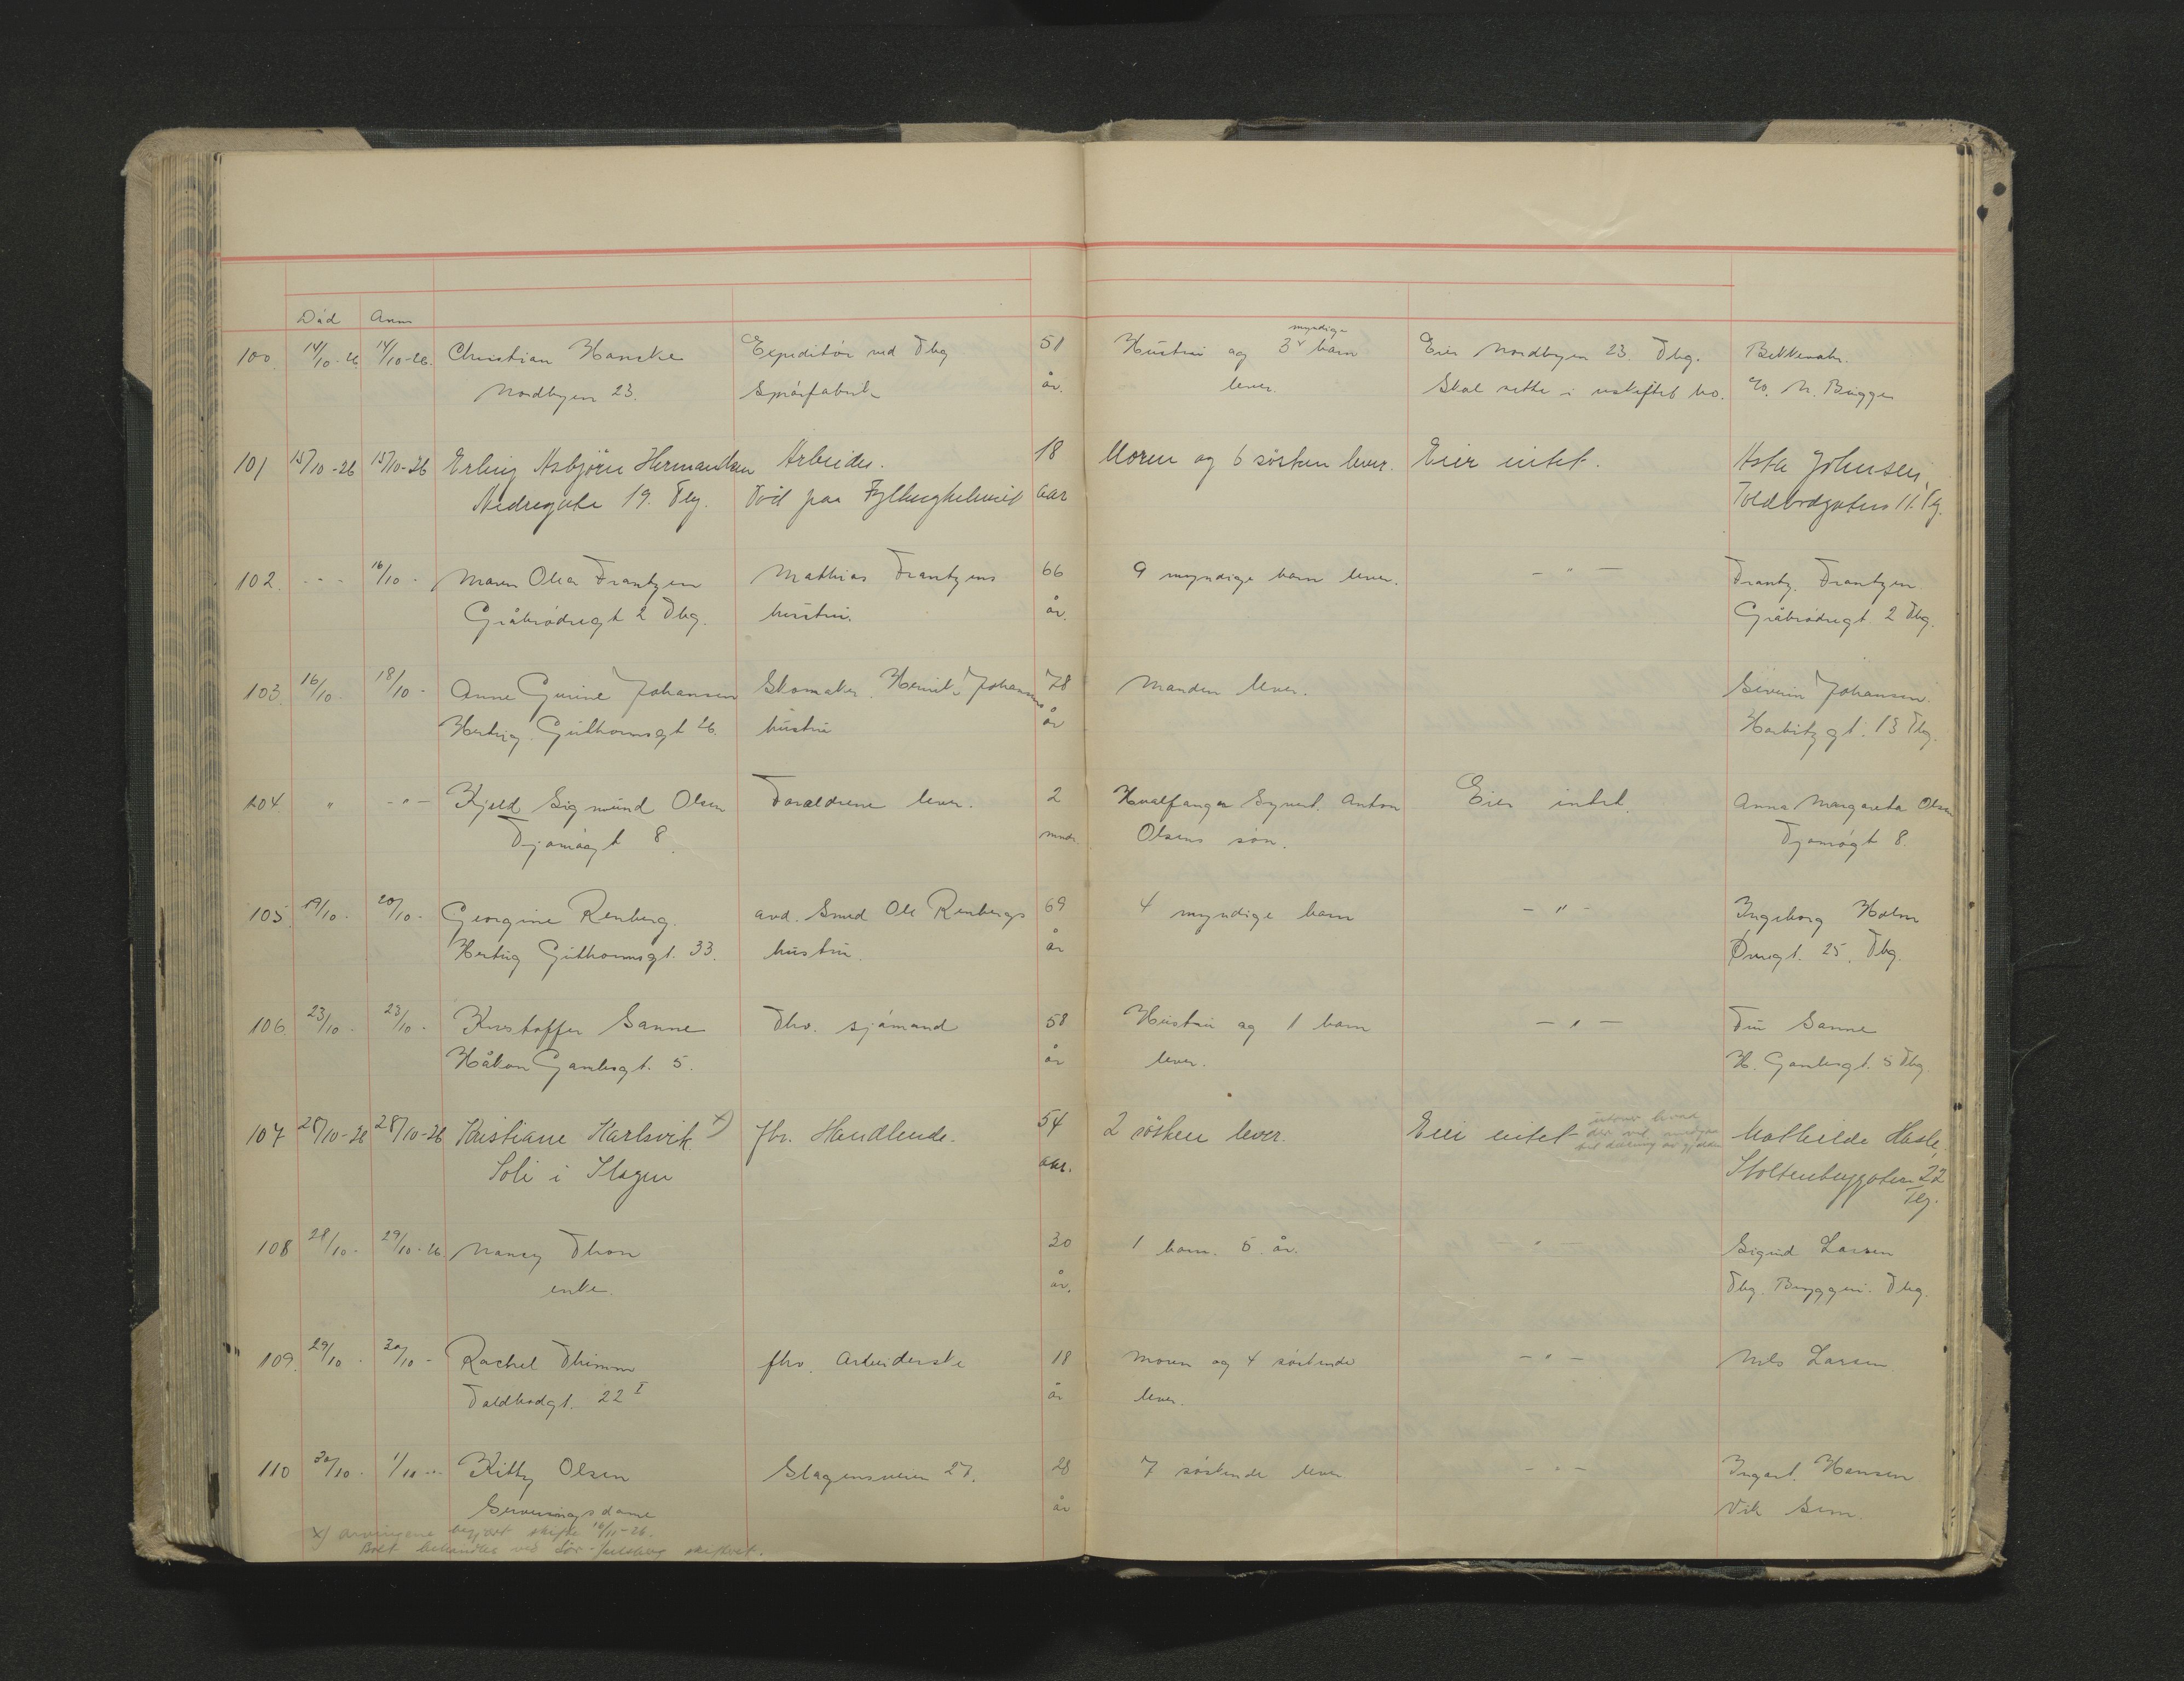 Död Anm
100. 14/10-26 14/10-26. Christian Hancke Expeditör ved Tbg 51 Hustru og 3 myndige barn Eier Nordbyen 23. Tbg. Bekkevahr.
Nordbyen 23. Spräfabrik år. lever. Skal sitte i uskiftet bo. N. Brügger
101 15/10-26 15/10-26 Erling Asbjörn Hermandsen Arbeider. 18 Moren og 6 sösken lever. Eier intet. Asta Johnsen,
Nedregate 19. Tbg. Död paa Fyllinghelmet aar Toldbodgaten 11. Tbg.
102. - - - 16/10 - Maren Olea Frantzen Mathias Frantzens 66 9 myndige barn lever. - " - Frantz. Frantzen
Gråbrödregt 2 Tbg. hustru. år. Gråbrödregt. 2 Tbg.
103. 16/10. 18/10 - Anne Gurine Johansen Skomaker Henrik Johansens 78 Manden lever. Severin Johansen.
Hertug Guthormsgt 26. hustru år Harbitzgt. 13 Tbg.
104 " - " - Kjeld Sigmund Olsen Foraldrene lever. 2 Hvalfanger Synert. Anton Eier intet. Anna Margareta Olsen
Tjömögt 8. mndr. Olsens sön. Tjömögt 8.
105. 19/10. 20/10. Georgine Renberg. avd. Smed Ole Renbergs 69 4 myndige barn - " - Ingeborg Holm
Hertug Guthormsgt. 33. hustru. år Övregt. 25. Tbg.
106 23/10. 23/10. Kristoffer Sanne Fhv. sjömand 58 Hustru og 1 barn - " - Sanne
Håkon Gamlesgt. 5. år lever. H. Gamlesgt. 5 Tbg.
107 28/10-26 28/10-26 Kristiane Karlsvik x) fhv. Handlende. 54 2 sösken lever. Eier intet utover hvad der vil medgaa til dækning av gjælden Mathilde Hasle,
Soli i Slagen aar. Stoltenberggaten 22
Tbg.
108 28/10. 29/10-26 Nancy Thon 30 1 barn. 5 år. " - Sigrid Larsen
enke. år. Tbg. Bryggeri. Tbg.
109. 29/10. 30/10 - Rachel Thimm fhv. Arbeiderske 18 Moren og 4 söskende - " - Nils Larsen
Toldbodgt. 22 I år lever.
110 30/10. 1/11 Kitty Olsen Slagensveien 27. 28 7 söskende lever - " - Ingart. Hansen
Serveringsdame år Vik Sem.
x) arvingene begjært skifte 16/11-26.
Boet behandles ved Sör-Jarlsberg skifteret.